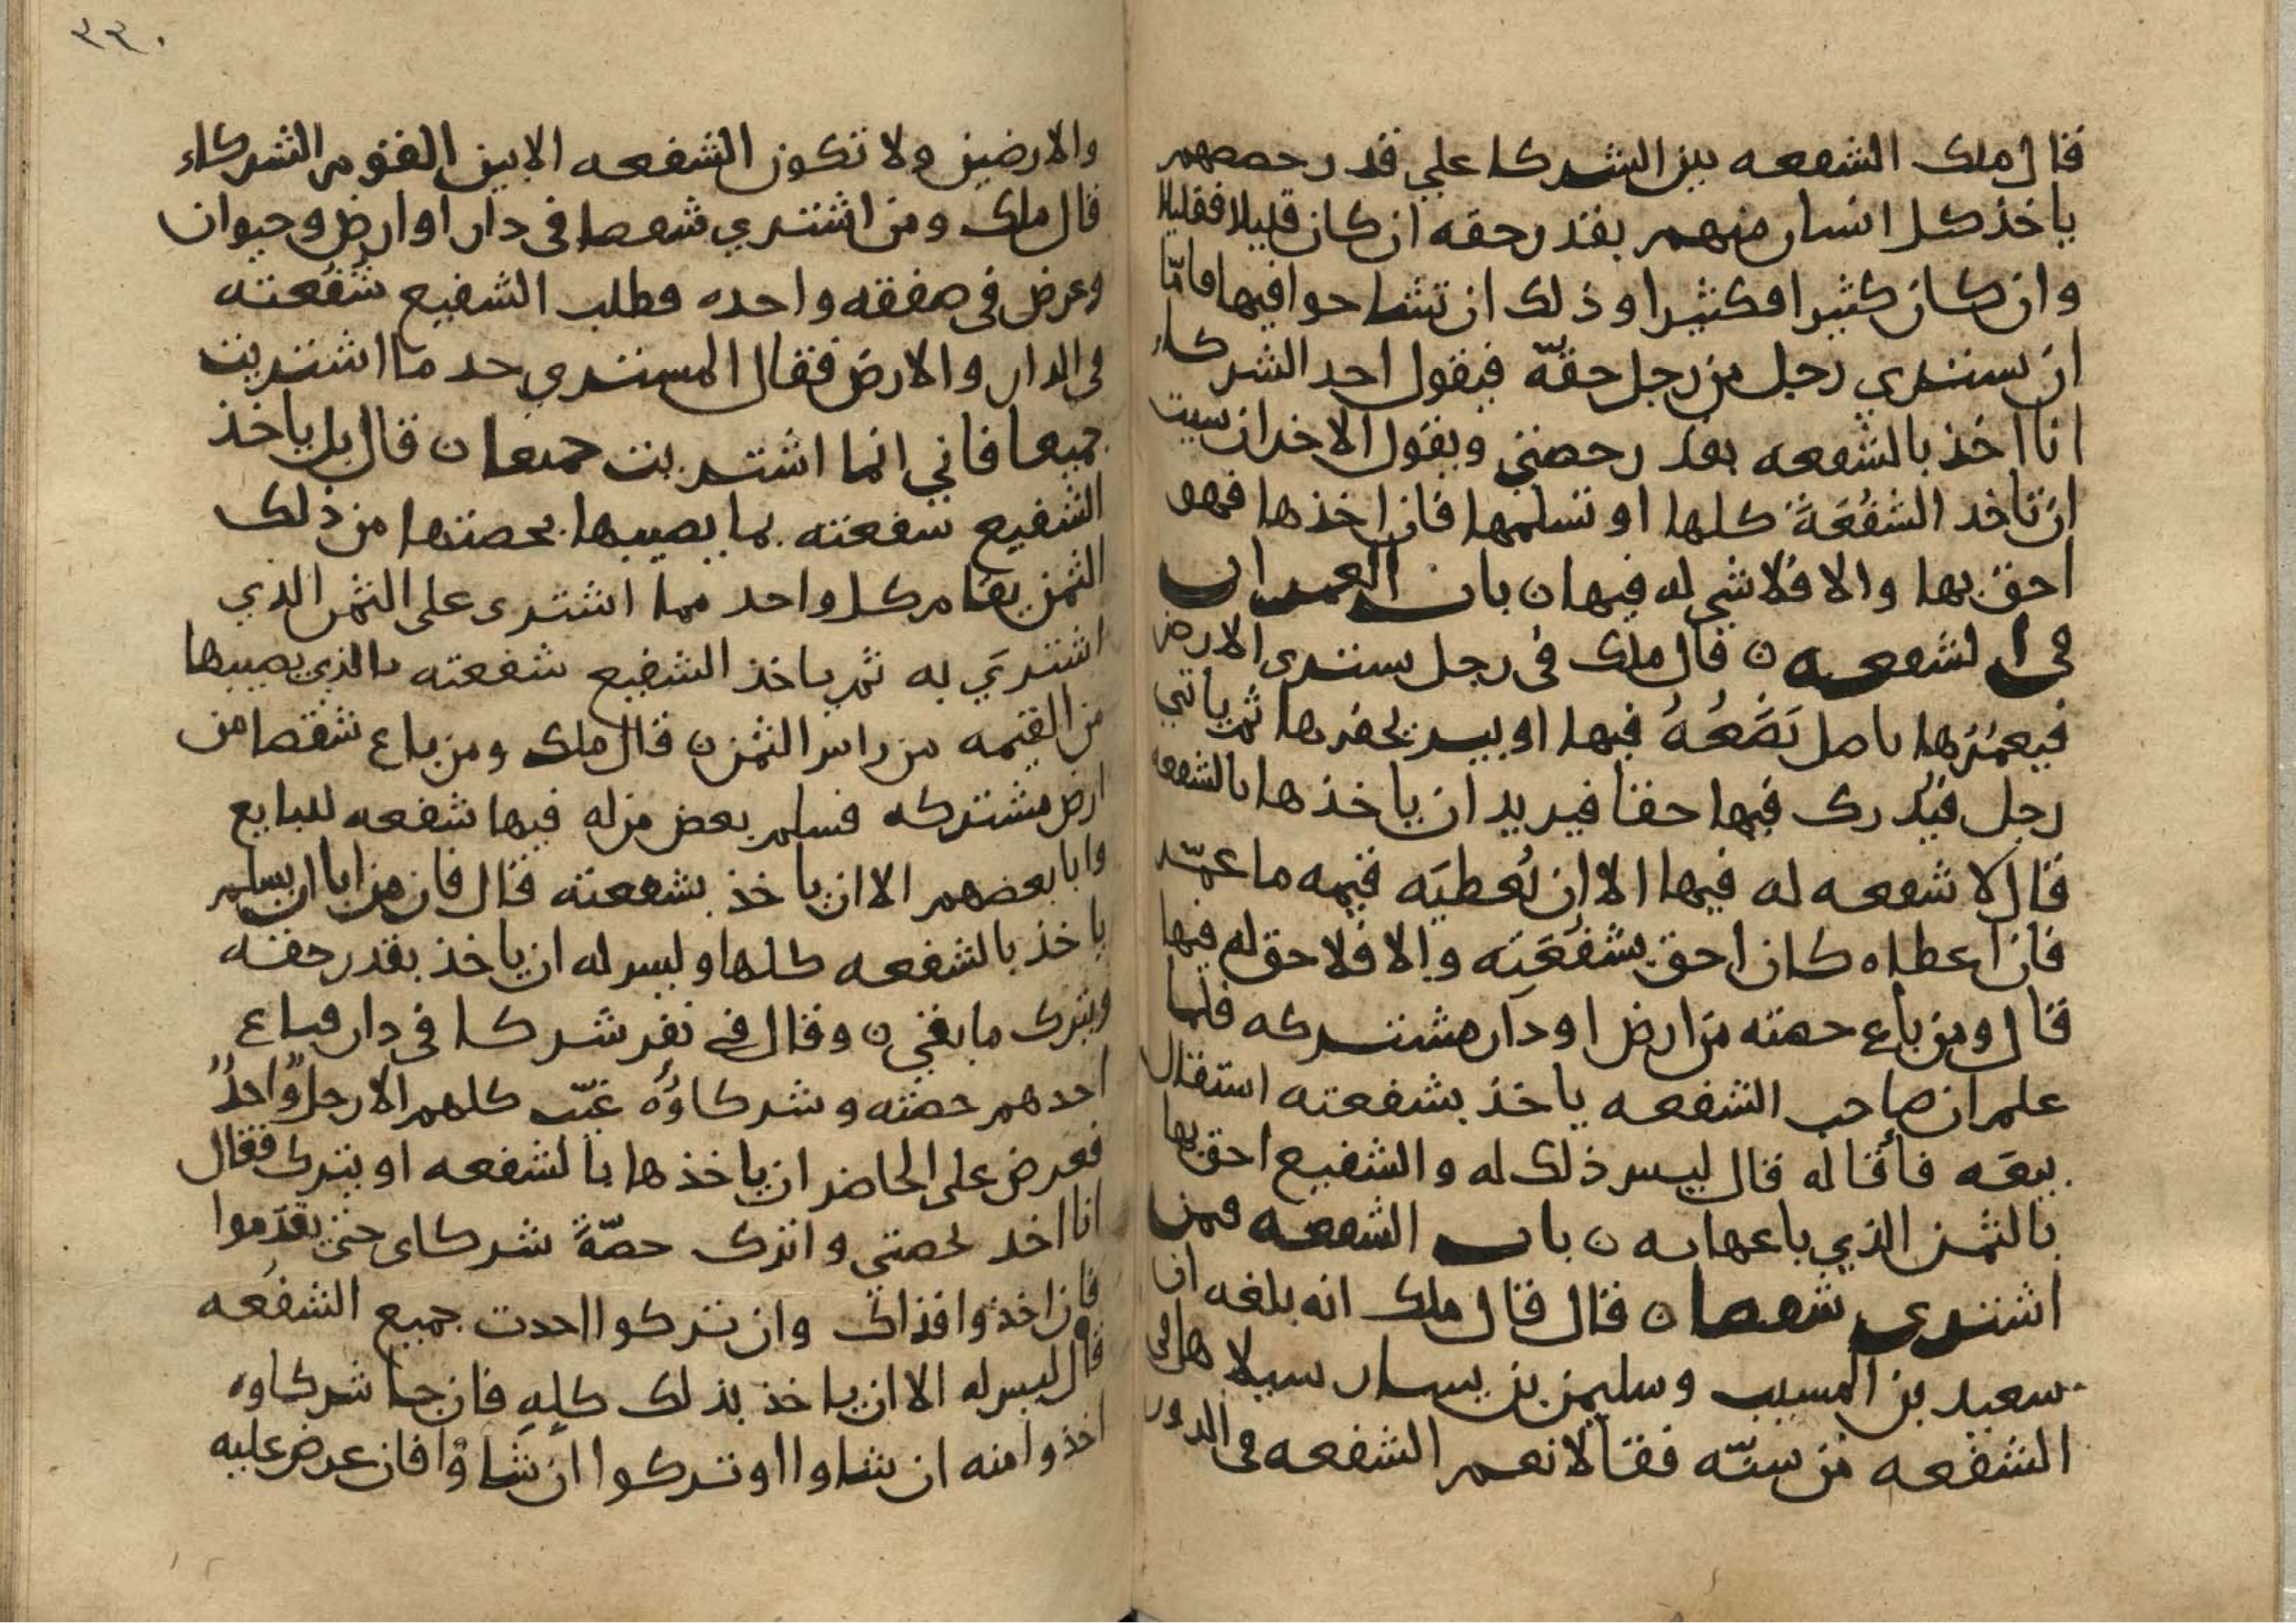 قال ملك الشفعه بين الشركا علي قدر حصصهم
ياخذ كل انسان منهم بقدر حقه ان كان قليلا فقليلا
وان كان كثيرا فكثيرا وذلك ان تشاحوا فيها فامّا
ان يشتري رجل من رجل حقّه فيقول احد الشركاء
انا اخذ بالشفعه بقدر حصتي ويقول الاخر ان شيت
ان تاخذ الشُفُعَةَ كلها او تسلمها فان اخذها فهو
احق بها والا فلا شي له فيها ن باب العمران
في الشفعه ن قال ملك في رجل يشتري الارض
فيعمُرها باصل يَضَعُهُ فيها او بير يحفرها ثم ياتي
رجل فيُدرك فيها حقا فيريد ان ياخذها بالشفعه
قال لا شفعه له فيها الا ان يُعطيَه قيمه ما عمّر
فان اعطاه كان احق بشُفُعَتِه والا فلا حق له فيها
قال ومن باع حصته من ارض او دار مشتركه فلما
علم ان صاحب الشفعه ياخذ بشفعته استقال
بيعَه فأقاله قال ليس ذلك له والشفيع احق بها
بالثمن الذي باعها به ن باب الشفعه فمن
اشترى شقصا ن قال قال ملك انه بلغه ان
سعيد بن المسيب وسليمن بن يسار سيلا هل في
الشفعه من سنّه فقالا نعم الشفعه في الدور
٢٣٠
والارضين ولا تكون الشفعه الا بين القوم الشركاء
قال ملك ومن اشتري شقصا في دار او ارض وحيوان
وعرض في صفقه واحده فطلب الشفيع شُفُعته
في الدار والارض فقال المشتري خد ما اشتريت
جميعا فاني انما اشتريت جميعا ن قال بل ياخذ
الشفيع شفعته بما يصيبها بحصتها من ذلك
الثمن يقام كل واحد مما اشترى على الثمن الذي
اشتريَ به ثم ياخذ الشفيع شفعته بالذي يصيبها
من القيمه من راس الثمن ن قال ملك ومن باع شقصا من
ارض مشتركه فسلم بعض من له فيها شفعه للبايع
وابا بعضهم الا ان ياخذ بشفعته قال فان من ابا ان يسلم
ياخذ بالشفعه كلها وليس له ان ياخذ بقدر حقه
ويترك ما بقي ن وقال في نفر شركا في دار فباع
احدهم حصّته وشركاوُهُ غيّب كلهم الا رجلاً واحدًا
فعرض على الحاضر ان ياخذها بالشفعه او يترك فقال
انا اخد بحصتي واترك حصّةَ شركاى حتى يقدَموا
فان اخذوا فذاك وان تركوا اخدت جميع الشفُعه
قال ليس له الا ان ياخذ بذلك كلِهِ فان جا شركاوه
اخذوا منه ان شاوا او تركوا ان شاوْا فان عرض عليه